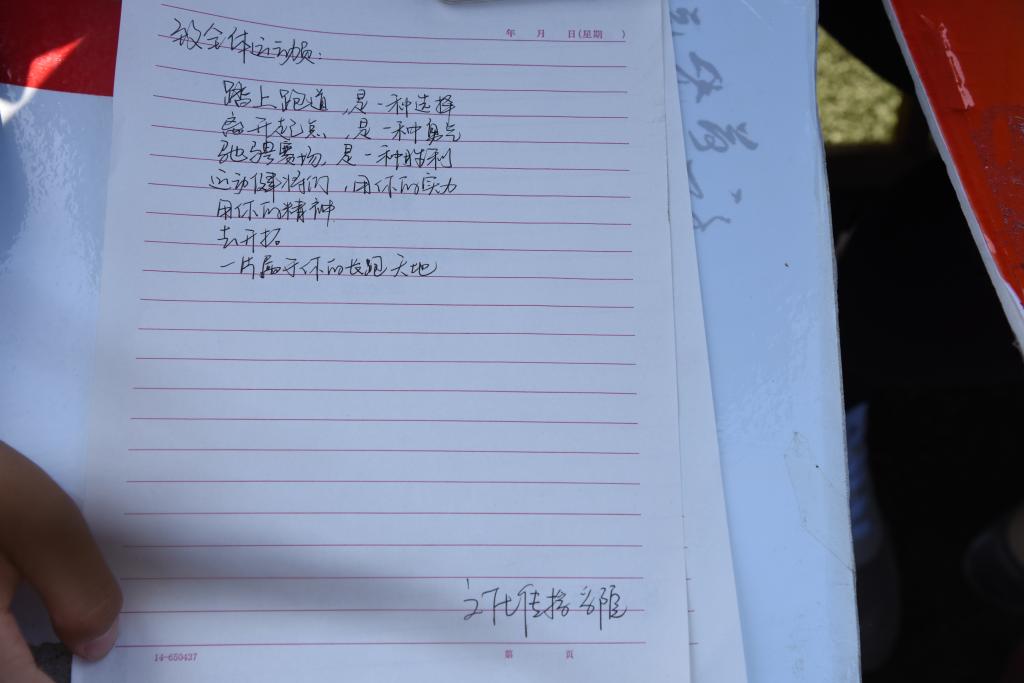 年 月 日(星期 )
致全体运动员:
踏上跑道,是一种选择
离开起点,是一种勇气
驰骋赛场,是一种胜利
运动健将们,用你的实力
用你的精神
去开拓
一片属于你的长跑天地
文化传播学院
14-650437
第 页